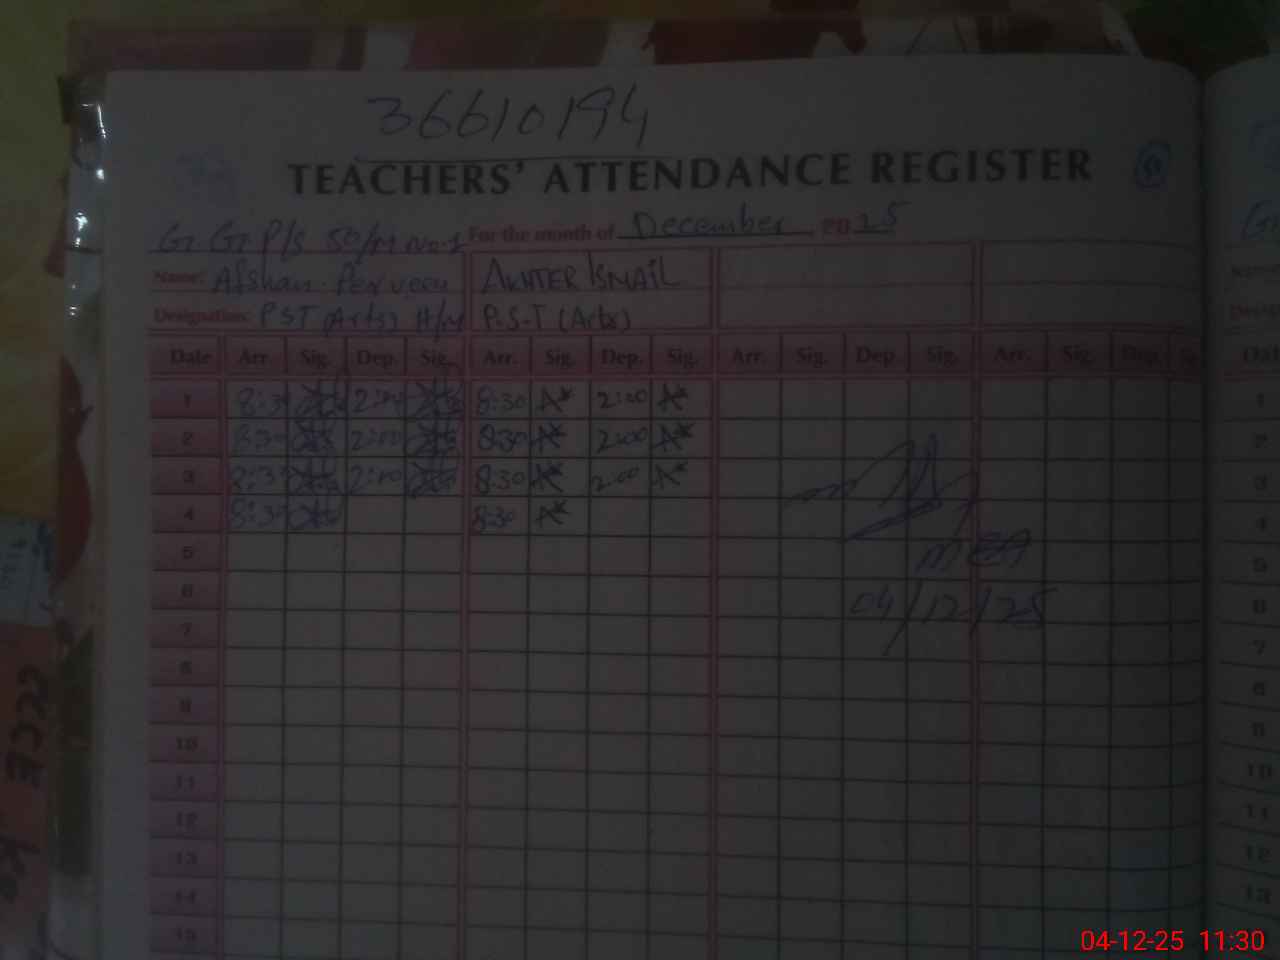 36610194
TEACHERS' ATTENDANCE REGISTER 6
G G P/S 50/M No.1 For the month of December 2025
Name: Afshan Perveen AKHTER ISMAIL
Designation: PST (Arts) H/M P.S.T (Arts)
Date Arr. Sig. Dep. Sig. Arr. Sig. Dep. Sig. Arr. Sig. Dep. Sig. Arr. Sig. Dep. Sig.
1 8:30 2:00 8:30 A* 2:00 A*
2 8:30 2:00 8:30 A* 2:00 A*
3 8:30 2:00 8:30 A* 2:00 A*
4 8:30 8:30 A*
5
MEA
6
04/12/25
7
8
9
10
11
12
13
14
15
Dat
1
2
3
4
5
6
7
8
9
10
11
12
13
CCE
04-12-25 11:30